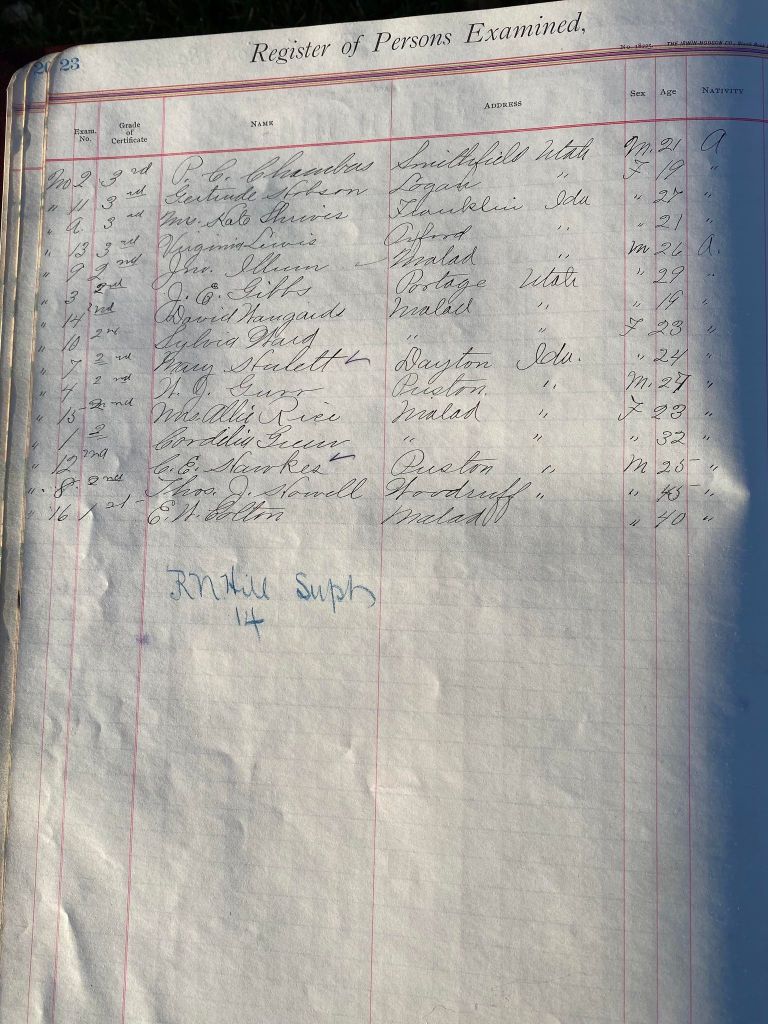 20 23
Register of Persons Examined,
No. 18227. THE IRWIN-HODSON CO.,
Exam. No. Grade of Certificate Name Address Sex Age Nativity
No 2 3rd P. C. Chambers Smithfield Utah M. 21 A
" 11 3rd Gertrude Hobson Logan " F 19 "
" 9. 3rd Mrs. Kate Shrives Franklin Ida " 27 "
" 13 3rd Virginia Lewis Oxford " " 21 "
" 9 2nd Jno. Illum Malad M 26 A.
" 3 2nd J. E. Gibbs Portage Utah " 29 "
" 14 2nd David Malad " " 19 "
" 10 2nd Sylvia " " F 23 "
" 7 2nd Hulett ✓ Dayton Ida. " 24 "
" 4 2nd Gurr Preston. " M. 27 "
" 15 2nd Mrs Allie Rice Malad " F 23 "
" 1 2 Cordelia Green " " " 32 "
" 12 2nd C. E. Hawkes ✓ Preston " M 25 "
" 8. 2nd Thos. J. Howell Woodruff " " 45 "
" 16 1st E. W. Colton Malad " 40 "
R N Hill Supt
14